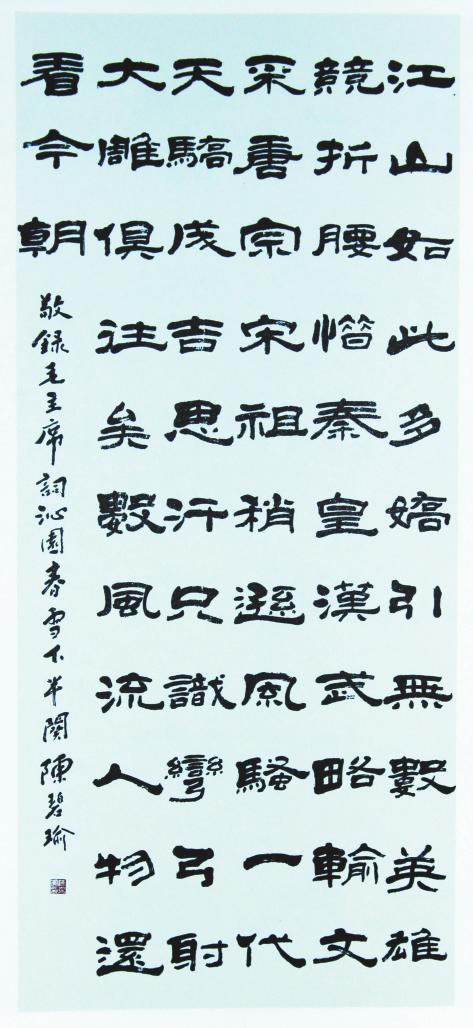 江山如此多嬌引無數英雄
競折腰惜秦皇漢武略輸文
采唐宗宋祖稍遜風騷一代
天驕成吉思汗只識彎弓射
大雕俱往矣數風流人物還
看今朝
敬錄毛主席詞沁園春雪下半闋 陳碧瑜